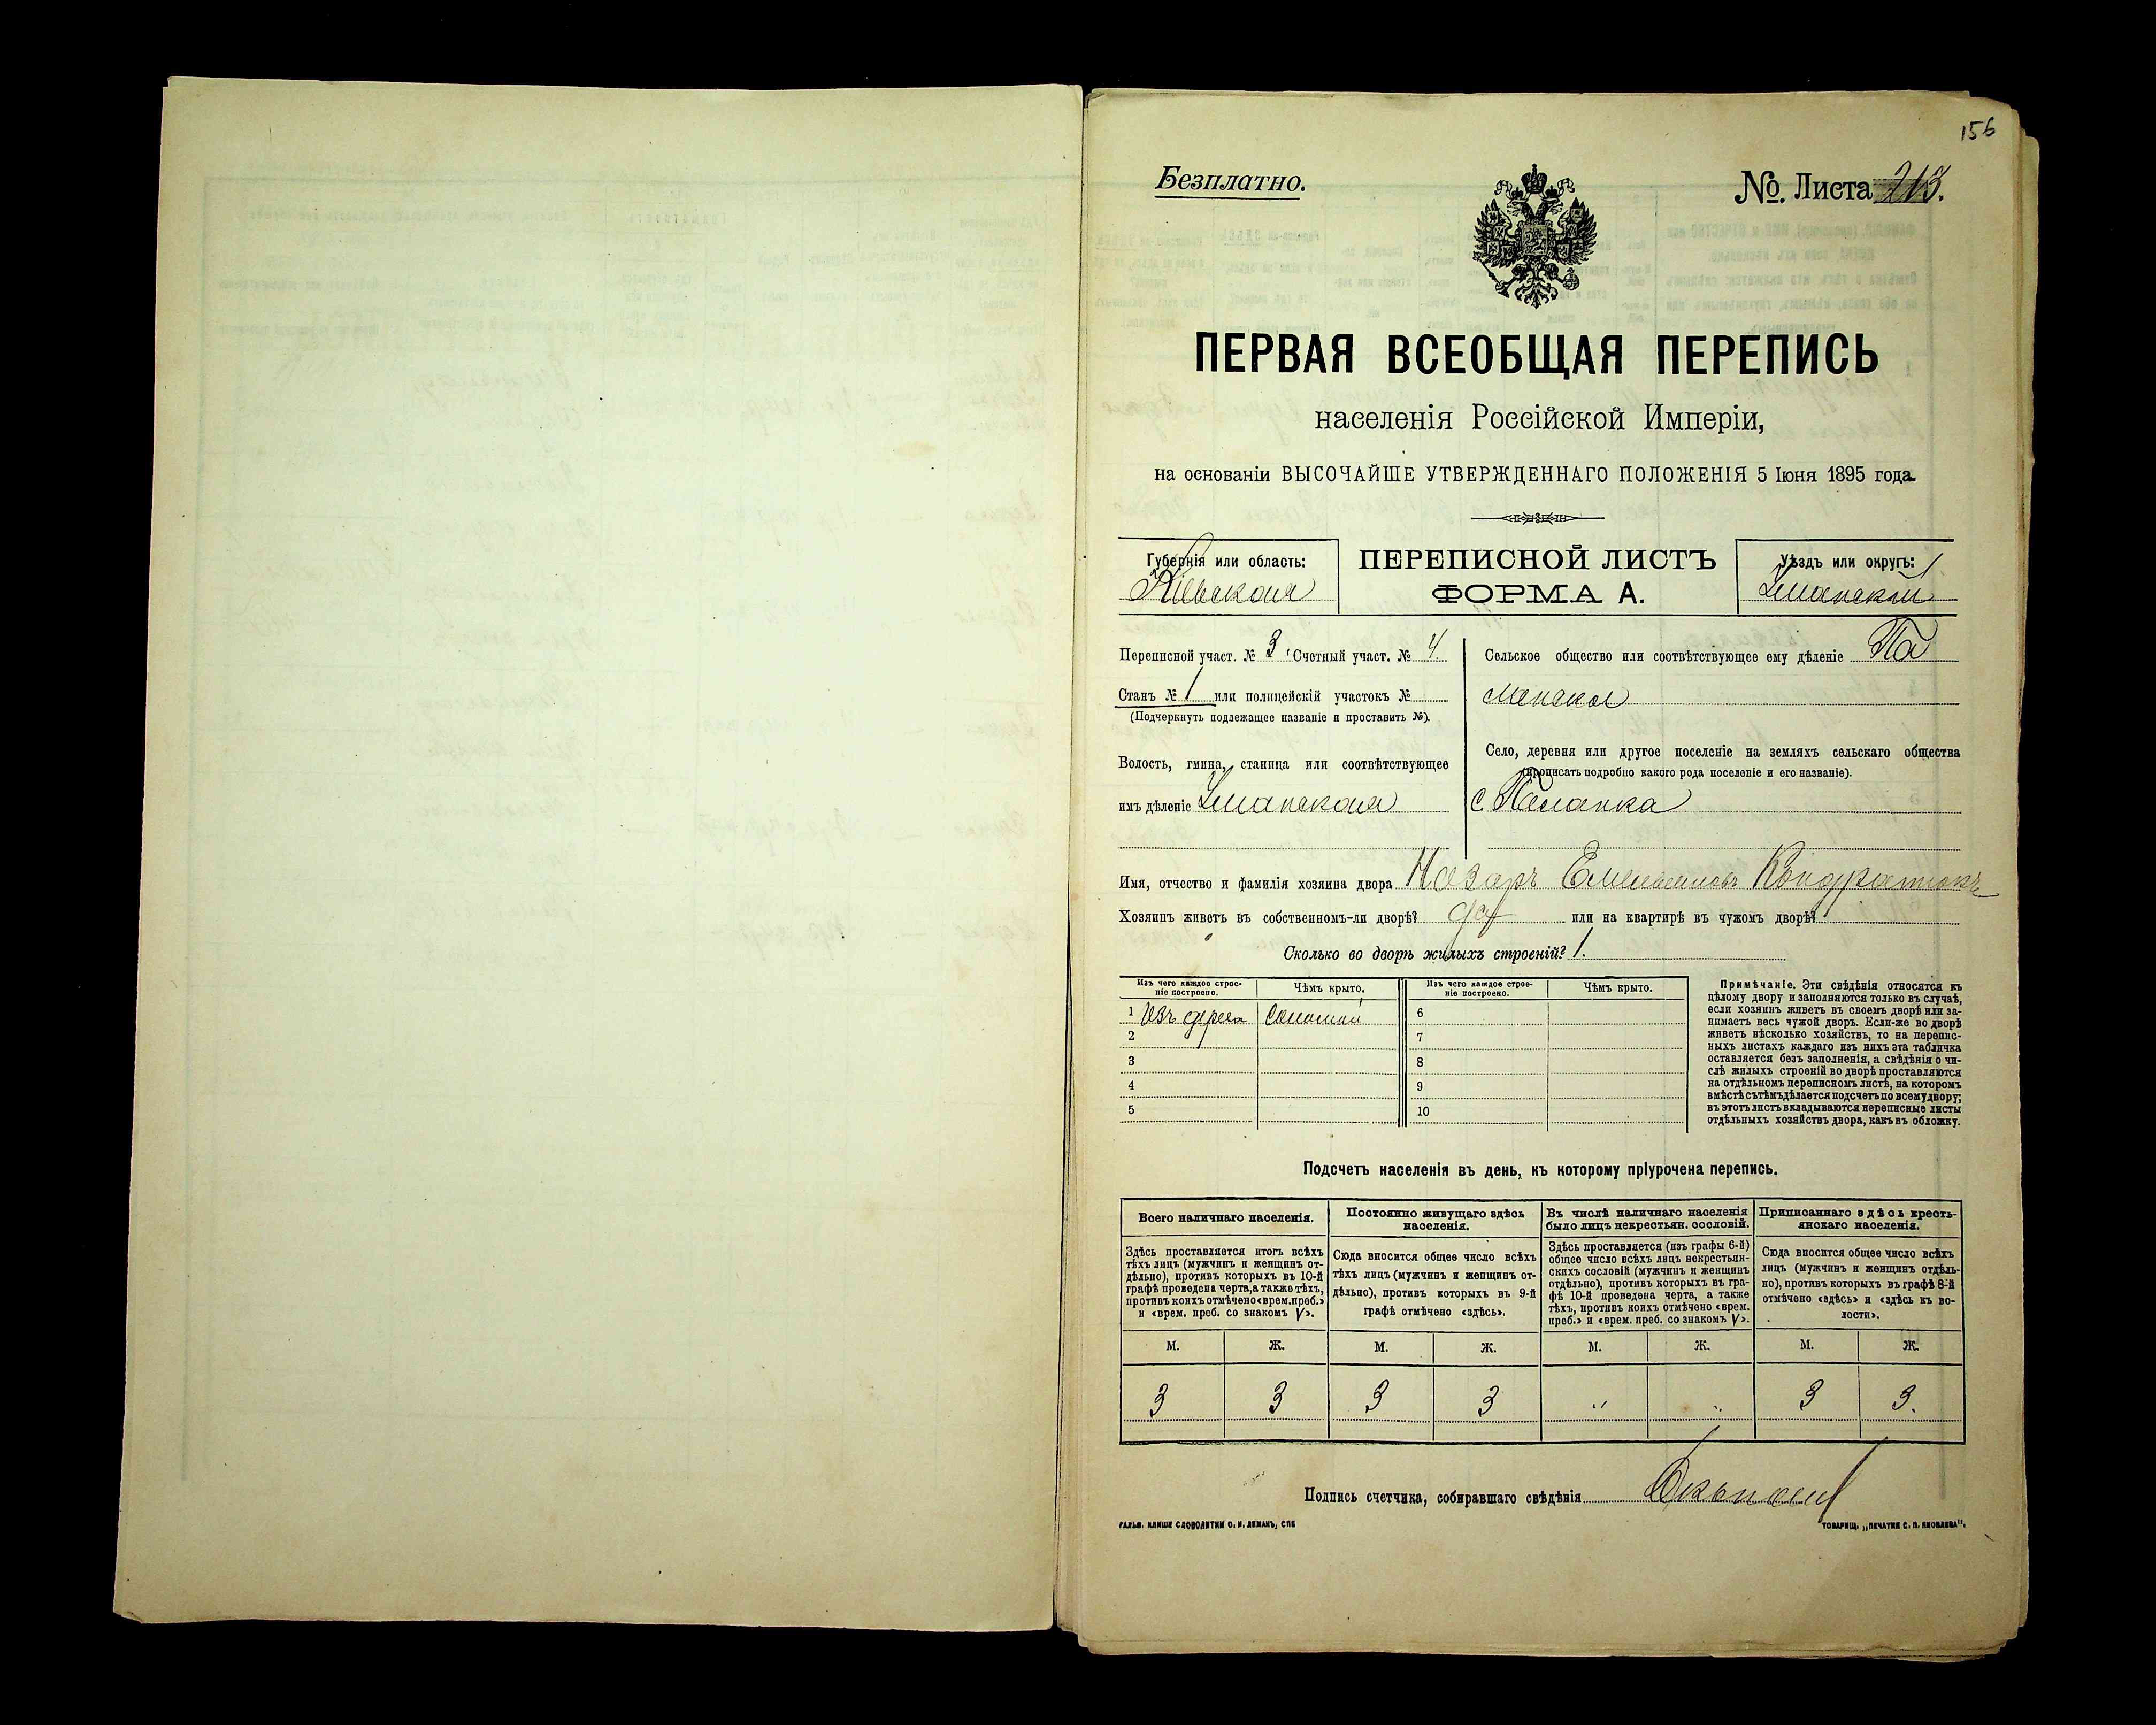 156
Безплатно.
№. Листа 213.
ПЕРВАЯ ВСЕОБЩАЯ ПЕРЕПИСЬ
населенія Россійской Имперіи,
на основаніи ВЫСОЧАЙШЕ УТВЕРЖДЕННАГО ПОЛОЖЕНІЯ 5 Іюня 1895 года.
Губернія или область:
Кіевская
ПЕРЕПИСНОЙ ЛИСТЪ
ФОРМА А.
Уѣздъ или округъ:
Уманскій
Переписной участ. № 3, Счетный участ. № 4
Станъ № 1 или полицейскій участокъ №
(Подчеркнуть подлежащее названіе и проставить №).
Волость, гмина, станица или соотвѣтствующее
имъ дѣленіе Уманская
Сельское общество или соотвѣтствующее ему дѣленіе Па
Село, деревня или другое поселеніе на земляхъ сельскаго общества
(прописать подробно какого рода поселеніе и его названіе).
с. Паланка
Имя, отчество и фамилія хозяина двора Назаръ Емельяновъ Кондратюкъ
Хозяинъ живетъ въ собственномъ-ли дворѣ? да или на квартирѣ въ чужомъ дворѣ?
Сколько во дворѣ жилыхъ строеній? 1.
Изъ чего каждое строе-
ніе построено.
Чѣмъ крыто.
Изъ чего каждое строе-
ніе построено.
Чѣмъ крыто.
1 Изъ дерева Соломой 6
2 7
3 8
4 9
5 10
Примѣчаніе. Эти свѣдѣнія относятся къ
цѣлому двору и заполняются только въ случаѣ,
если хозяинъ живетъ въ своемъ дворѣ или за-
нимаетъ весь чужой дворъ. Если-же во дворѣ
живетъ нѣсколько хозяйствъ, то на перепис-
ныхъ листахъ каждаго изъ нихъ эта табличка
оставляется безъ заполненія, а свѣдѣнія о чи-
слѣ жилыхъ строеній во дворѣ проставляются
на отдѣльномъ переписномъ листѣ, на которомъ
вмѣстѣ съ тѣмъ дѣлается подсчетъ по всему двору;
въ этотъ листъ вкладываются переписные листы
отдѣльныхъ хозяйствъ двора, какъ въ обложку.
Подсчетъ населенія въ день, къ которому пріурочена перепись.
Всего наличнаго населенія.
Здѣсь проставляется итогъ всѣхъ
тѣхъ лицъ (мужчинъ и женщинъ от-
дѣльно), противъ которыхъ въ 10-й
графѣ проведена черта, а также тѣхъ,
противъ коихъ отмѣчено «врем. преб.»
и «врем. преб. со знакомъ V».
Постоянно живущаго здѣсь
населенія.
Сюда вносится общее число всѣхъ
тѣхъ лицъ (мужчинъ и женщинъ от-
дѣльно), противъ которыхъ въ 9-й
графѣ отмѣчено «здѣсь».
Въ числѣ наличнаго населенія
было лицъ некрестьян. сословій.
Здѣсь проставляется (изъ графы 6-й)
общее число всѣхъ лицъ некрестьян-
скихъ сословій (мужчинъ и женщинъ
отдѣльно), противъ которыхъ въ гра-
фѣ 10-й проведена черта, а также
тѣхъ, противъ коихъ отмѣчено «врем.
преб.» и «врем. преб. со знакомъ V».
Приписаннаго здѣсь кресть-
янскаго населенія.
Сюда вносится общее число всѣхъ
лицъ (мужчинъ и женщинъ отдѣль-
но), противъ которыхъ въ графѣ 8-й
отмѣчено «здѣсь» и «здѣсь къ во-
лости».
М. Ж. М. Ж. М. Ж. М. Ж.
3 3 3 3 " " 3 3.
Подпись счетчика, собиравшаго свѣдѣнія
ГАЛЬВ. КЛИШЕ СЛОВОЛИТНИ О. И. ЛЕМАНЪ, СПБ
ТОВАРИЩ. „ПЕЧАТНЯ С. П. ЯКОВЛЕВА".